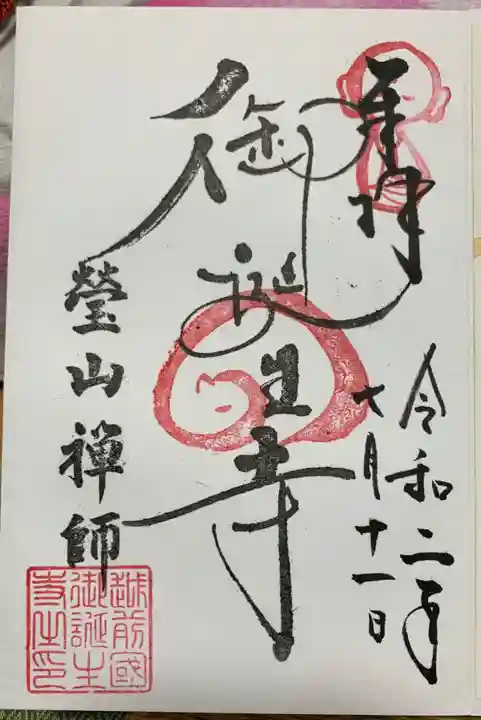 奉拝
令和二年
月十一日
御誕生寺
瑩山禅師
越前國
御誕生
寺之印